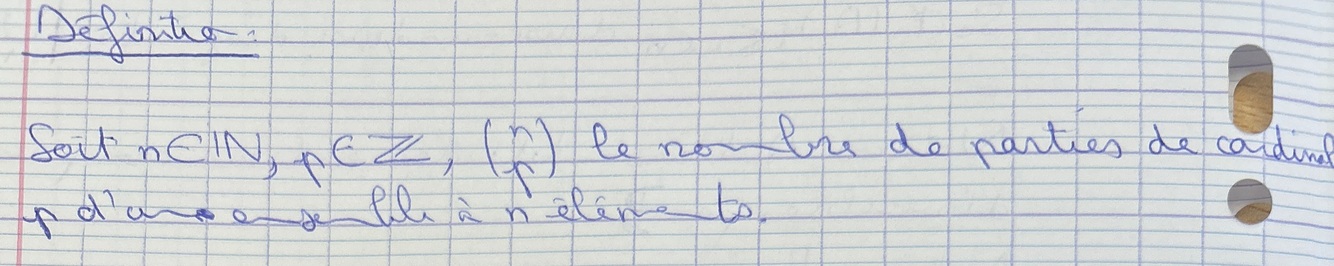 Définition:
Soit n∈ℕ, p∈ℤ, (n p) le nombre de parties de cardinal
p d'un ensemble à n éléments.